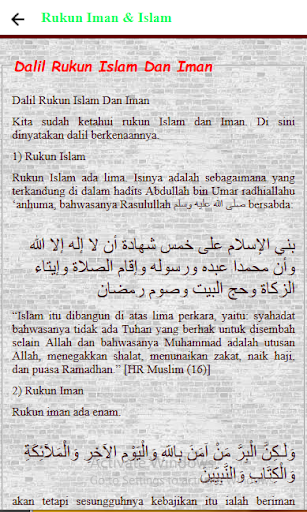 Rukun Iman & Islam
Dalil Rukun Islam Dan Iman
Dalil Rukun Islam Dan Iman
Kita sudah ketahui rukun Islam dan Iman. Di sini
dinyatakan dalil berkenaannya.
1) Rukun Islam
Rukun Islam ada lima. Isinya adalah sebagaimana yang
terkandung di dalam hadits Abdullah bin Umar radhiallahu
‘anhuma, bahwasanya Rasulullah صلى الله عليه وسلم bersabda:
بني الإسلام على خمس شهادة أن لا إله إلا الله
وأن محمدا عبده ورسوله وإقام الصلاة وإيتاء
الزكاة وحج البيت وصوم رمضان
“Islam itu dibangun di atas lima perkara, yaitu: syahadat
bahwasanya tidak ada Tuhan yang berhak untuk disembah
selain Allah dan bahwasanya Muhammad adalah utusan
Allah, menegakkan shalat, menunaikan zakat, naik haji,
dan puasa Ramadhan.” [HR Muslim (16)]
2) Rukun Iman
Rukun iman ada enam.
وَلَكِنَّ الْبِرَّ مَنْ آمَنَ بِاللَّهِ وَالْيَوْمِ الآخِرِ وَالْمَلَائِكَةِ
وَالْكِتَابِ وَالنَّبِيِّينَ
Activate Window
Go to Settings to
akan tetapi sesungguhnya kebajikan itu ialah beriman